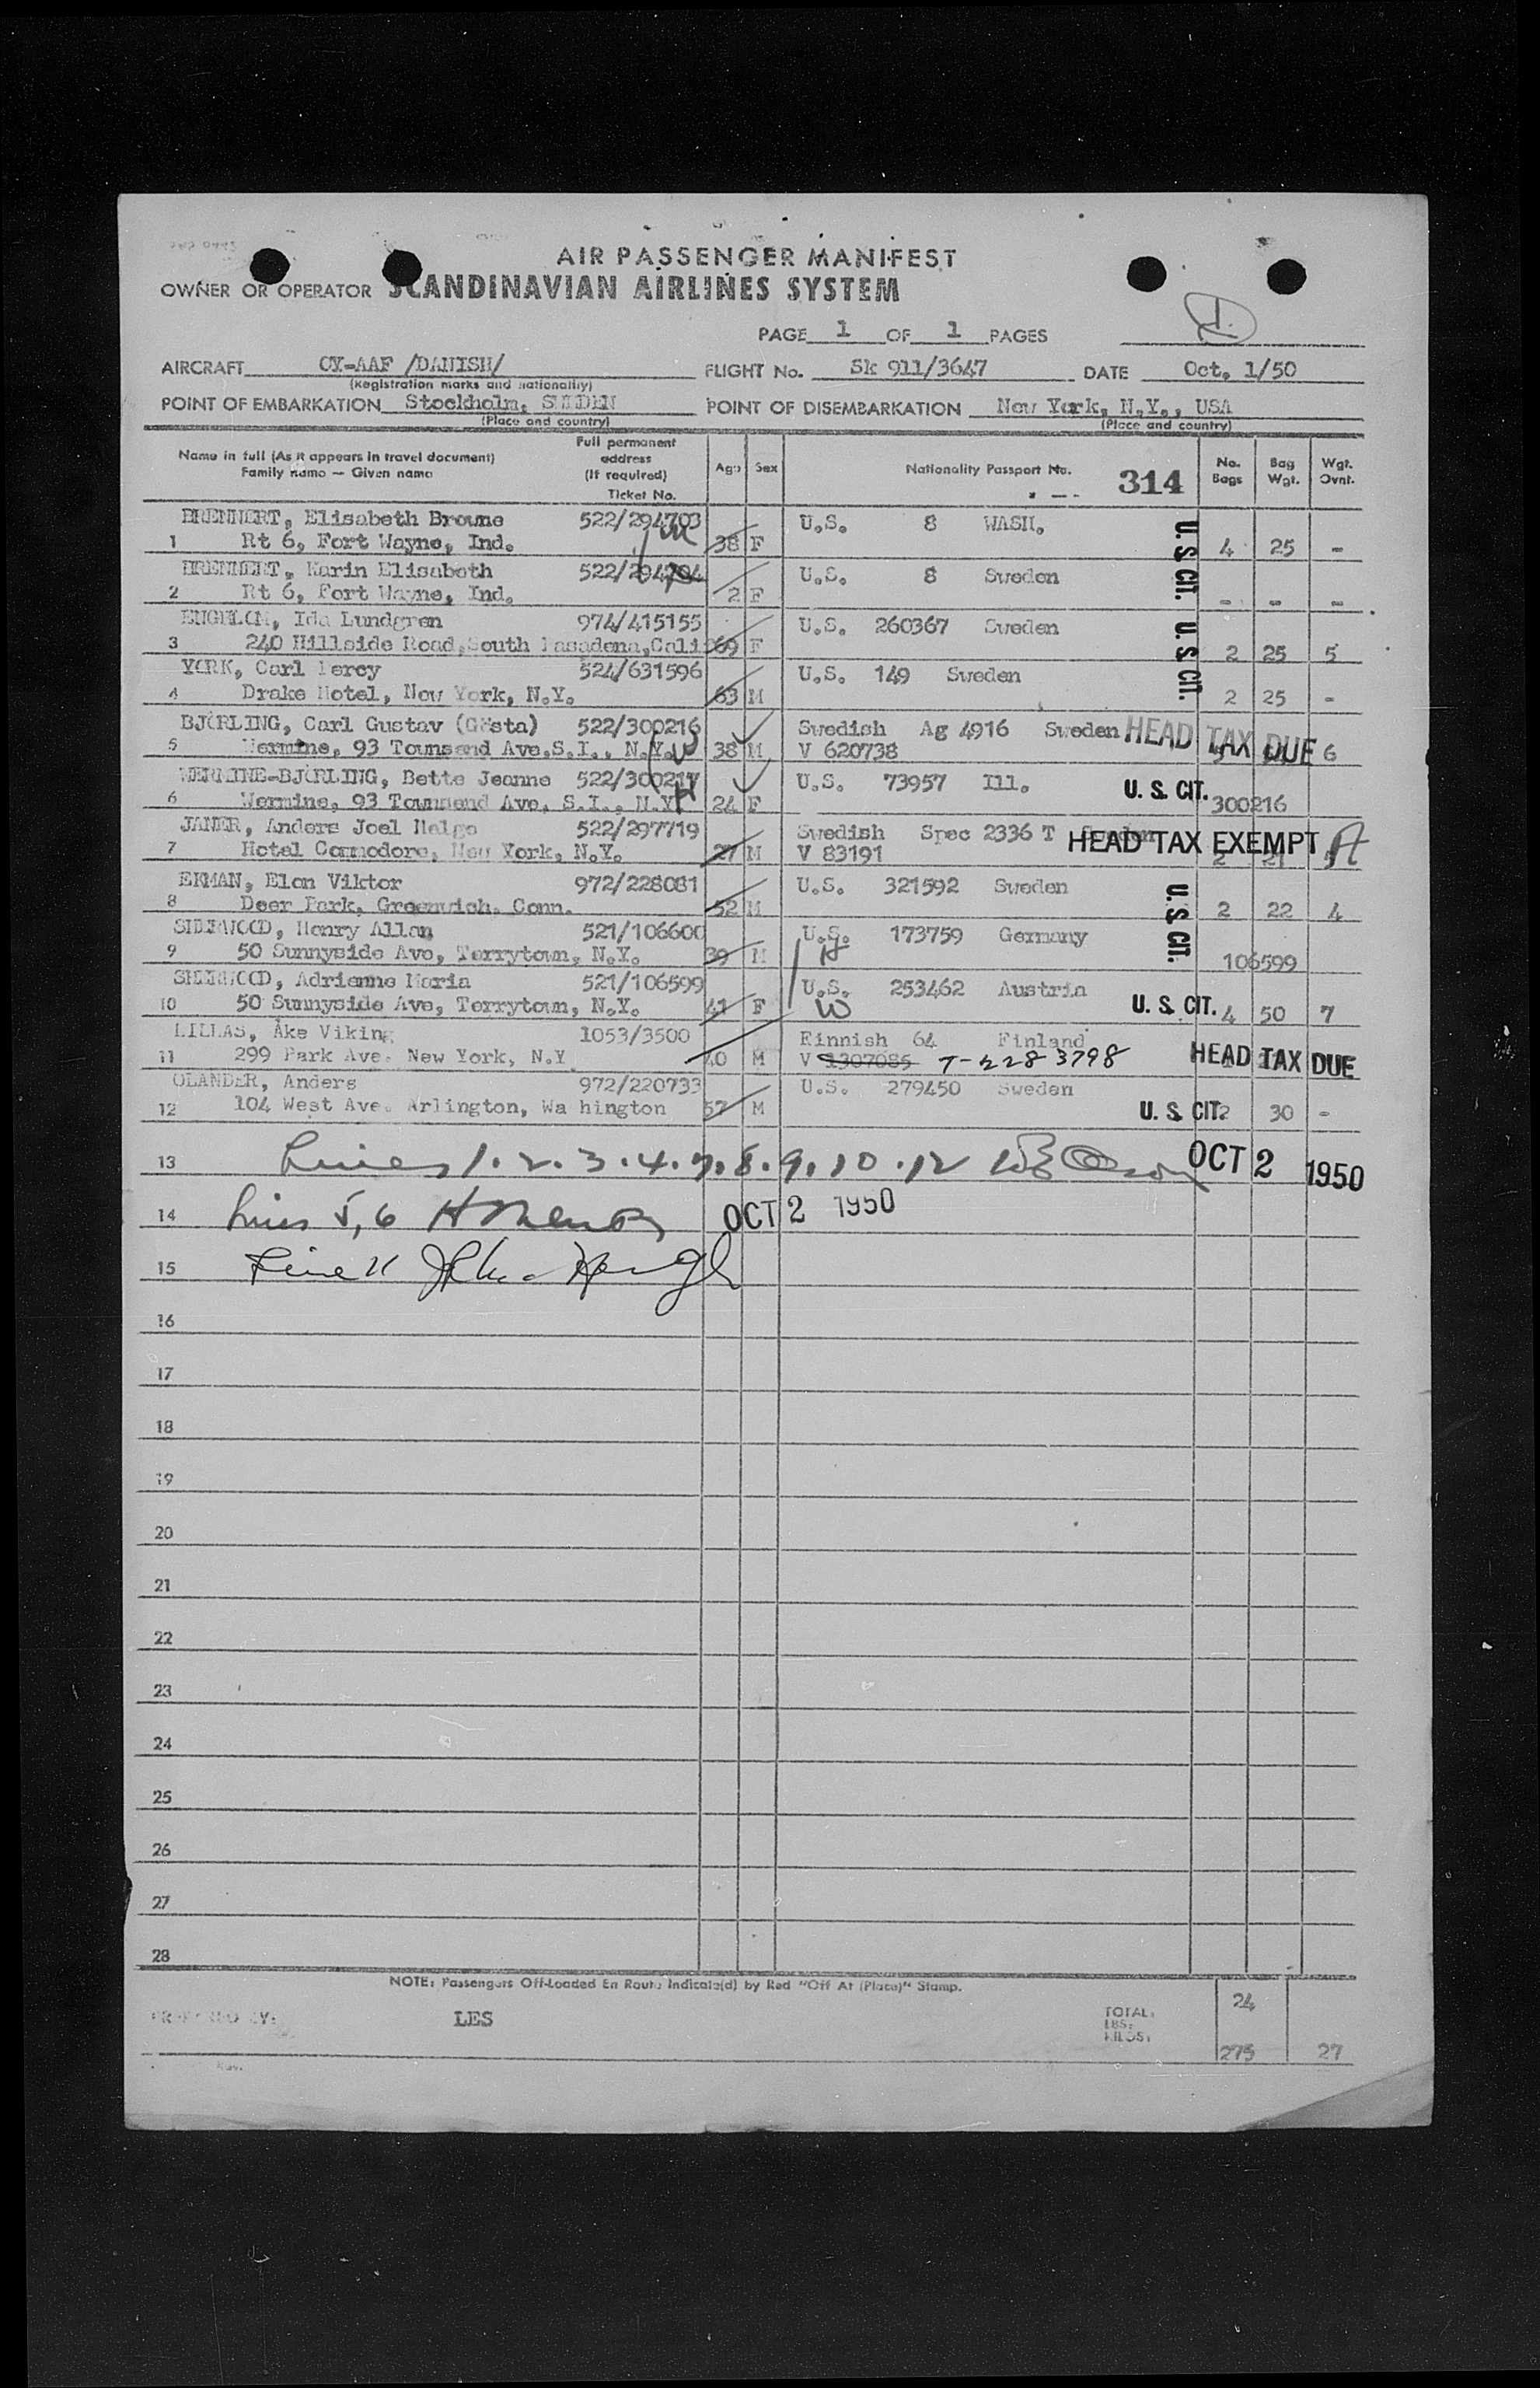 AIR PASSENGER MANIFEST
OWNER OR OPERATOR SCANDINAVIAN AIRLINES SYSTEM
PAGE 1 OF 1 PAGES
1.
AIRCRAFT OY-AAF /DANISH/ FLIGHT No. Sk 911/3647 DATE Oct. 1/50
(Registration marks and nationality)
POINT OF EMBARKATION Stockholm, SWEDEN POINT OF DISEMBARKATION New York, N.Y., USA
(Place and country) (Place and country)
Name in full (As it appears in travel document) Family name — Given name
Full permanent address (If required) Ticket No.
Age Sex Nationality Passport No. 314 No. Bags Bag Wgt. Wgt. Ovnt.
BRENNERT, Elisabeth Browne 522/294703 U.S. 8 WASH. U. S. CIT.
1 Rt 6, Fort Wayne, Ind. 38 F 4 25 -
BRENNERT, Karin Elisabeth 522/294704 U.S. 8 Sweden
2 Rt 6, Fort Wayne, Ind. 2 F - - -
Ida Lundgren 974/415155 U.S. 260367 Sweden U. S. CIT.
3 240 Hillside Road, South Pasadena, Cali 69 F 2 25 5
YORK, Carl Percy 524/631596 U.S. 149 Sweden
4 Drake Hotel, New York, N.Y. 63 M 2 25 -
BJÖRLING, Carl Gustav (Gösta) 522/300216 Swedish Ag 4916 Sweden HEAD TAX DUE
5 Wermine, 93 Townsend Ave.S.I., N.Y. 38 M V 620738 6
WERMINE-BJÖRLING, Bette Jeanne 522/300217 U.S. 73957 Ill. U. S. CIT.
6 Wermine, 93 Townsend Ave, S.I., N.Y. 24 F 300216
JANER, Anders Joel Helge 522/297719 Swedish Spec 2336 T Sweden HEAD TAX EXEMPT
7 Hotel Commodore, New York, N.Y. 27 M V 83191 2 21
EKMAN, Elon Viktor 972/228081 U.S. 321592 Sweden U. S. CIT.
8 Deer Park, Greenwich, Conn. 52 M 2 22 4
SHERWOOD, Henry Allan 521/106600 U.S. 173759 Germany
9 50 Sunnyside Ave, Terrytown, N.Y. 39 M H 106599
SHERWOOD, Adrienne Maria 521/106599 U.S. 253462 Austria U. S. CIT.
10 50 Sunnyside Ave, Terrytown, N.Y. 41 F W 4 50 7
LILLAS, Åke Viking 1053/3500 Finnish 64 Finland
11 299 Park Ave. New York, N.Y 40 M V 1307085 T-2283798 HEAD TAX DUE
OLANDER, Anders 972/220733 U.S. 279450 Sweden
12 104 West Ave. Arlington, Wa hington 57 M U. S. CIT. 2 30 -
13 Lines 1.2.3.4.7.8.9.10.12 OCT 2 1950
14 Lines 5,6 OCT 2 1950
15 Line 11
16
17
18
19
20
21
22
23
24
25
26
27
28
NOTE: Passengers Off-Loaded En Route Indicate(d) by Red "Off At (Place)" Stamp.
PREPARED BY: LES TOTAL: 24
LBS:
KILOS: 275 27